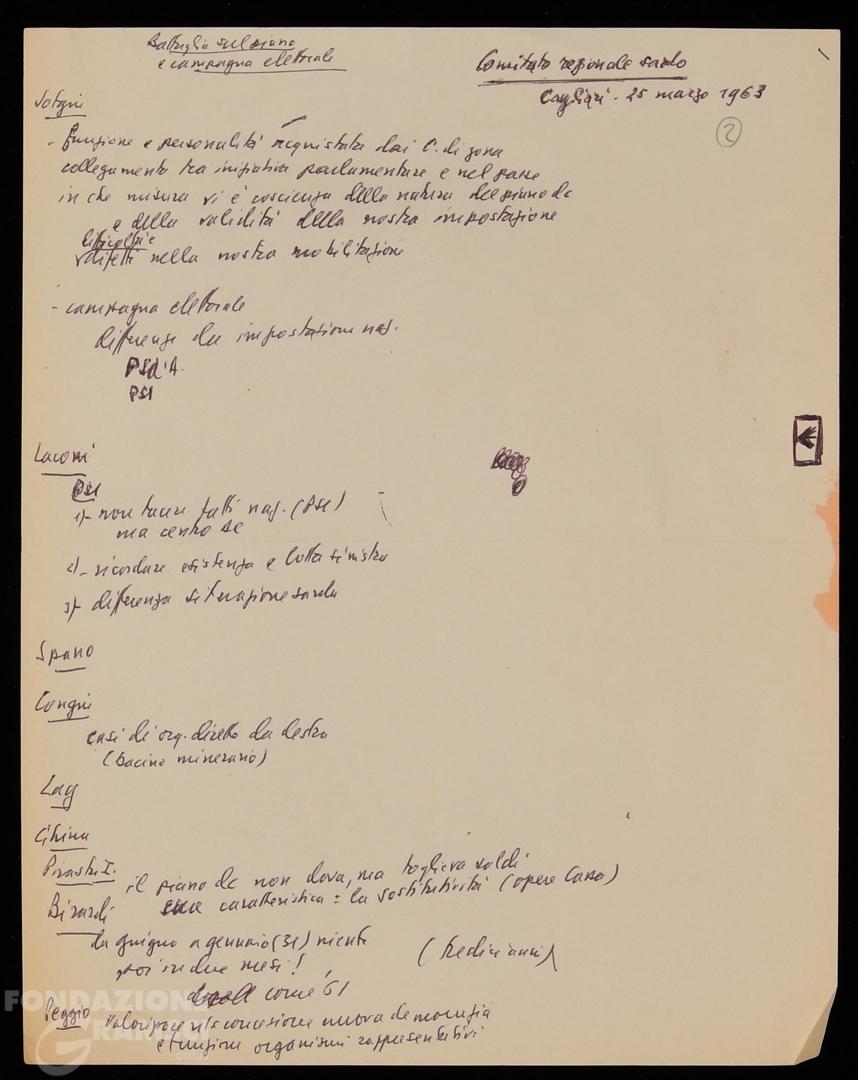 Battaglia sul piano
e campagna elettorale
Comitato regionale sardo
Cagliari - 25 marzo 1963
2
Sotgiu
- funzione e personalità acquistata dai C. di zona
collegamento tra iniziativa parlamentare e nel paese
in che misura vi è coscienza della natura del piano dc
e della validità della nostra impostazione
difficoltà e
difetti nella nostra mobilitazione
- campagna elettorale
differenze da impostazione naz.
PSd'A.
PSI
Laconi
PSI
1)- non tacere fatti naz. (PSI)
ma centro se
2)- ricordare esistenza e lotta sinistra
3)- differenza situazione sarda
Spano
Congiu
casi di org. diretto da destra
(bacino minerario)
Lay
Pirastu I.
il piano dc non dava, ma toglieva soldi
caratteristica = la sostitutività (opere Casa)
Birardi
da giugno a gennaio (31) niente
poi in due mesi!
(tredici anni)
come 61
Peggio
concezione nuova democrazia
e funzione organismi rappresentativi
FONDAZIONE
GRAMSCI
onlus